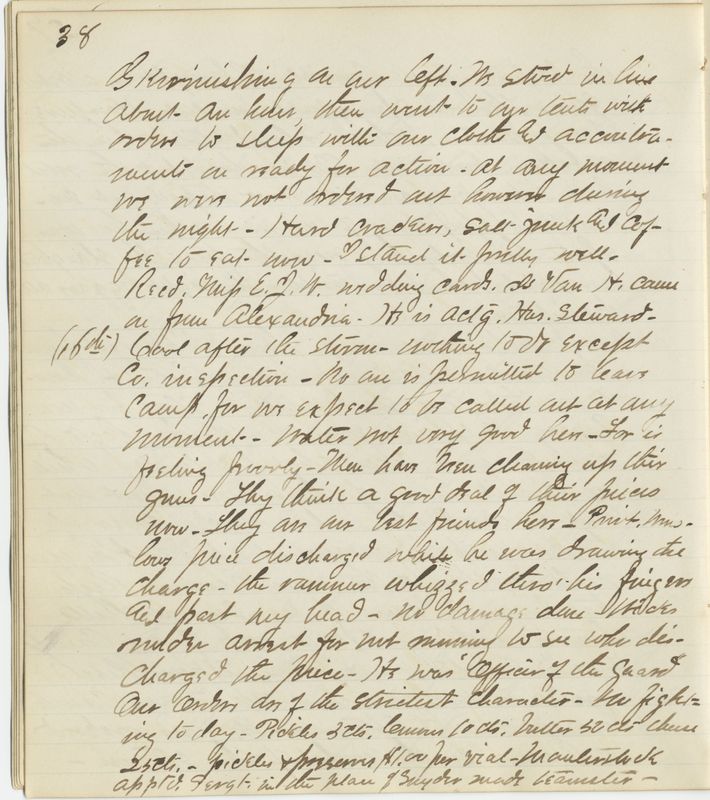 38
Skirmishing on our left. We stood in line
about an hour, then went to our tents with
orders to sleep with our clothes and accoutre-
ments on ready for action - at any moment
we were not ordered out however during
the night - Hard crackers, salt junk and cof-
fee to eat now - I stand it pretty well -
Recd. Miss E. W. wedding cards. Van H. came
on from Alexandria - He is actg. Hos. Steward -
(16th) Cool after the storm - nothing to do except
Co. inspection - No one is permitted to leave
Camp. for we expect to be called out at any
moment - Water not very good here - Lor is
feeling poorly - Men have been cleaning up their
guns - They think a good deal of their pieces
now - They are our best friends here - Privt.
piece discharged while he was drawing the
charge - the rammer whizzed thro' his fingers
and past my head - no damage done -
under arrest for not running to see who dis-
charged the piece - He was Officer of the Guard
Our orders are of the strictest character - No fight=
ing to day - Pickles 3cts. lemons 10 cts. butter 50 cts cheese
25cts. - pickles & preserves $1.00 per vial -
apptd. Sergt. in the place of Snyder made teamster -